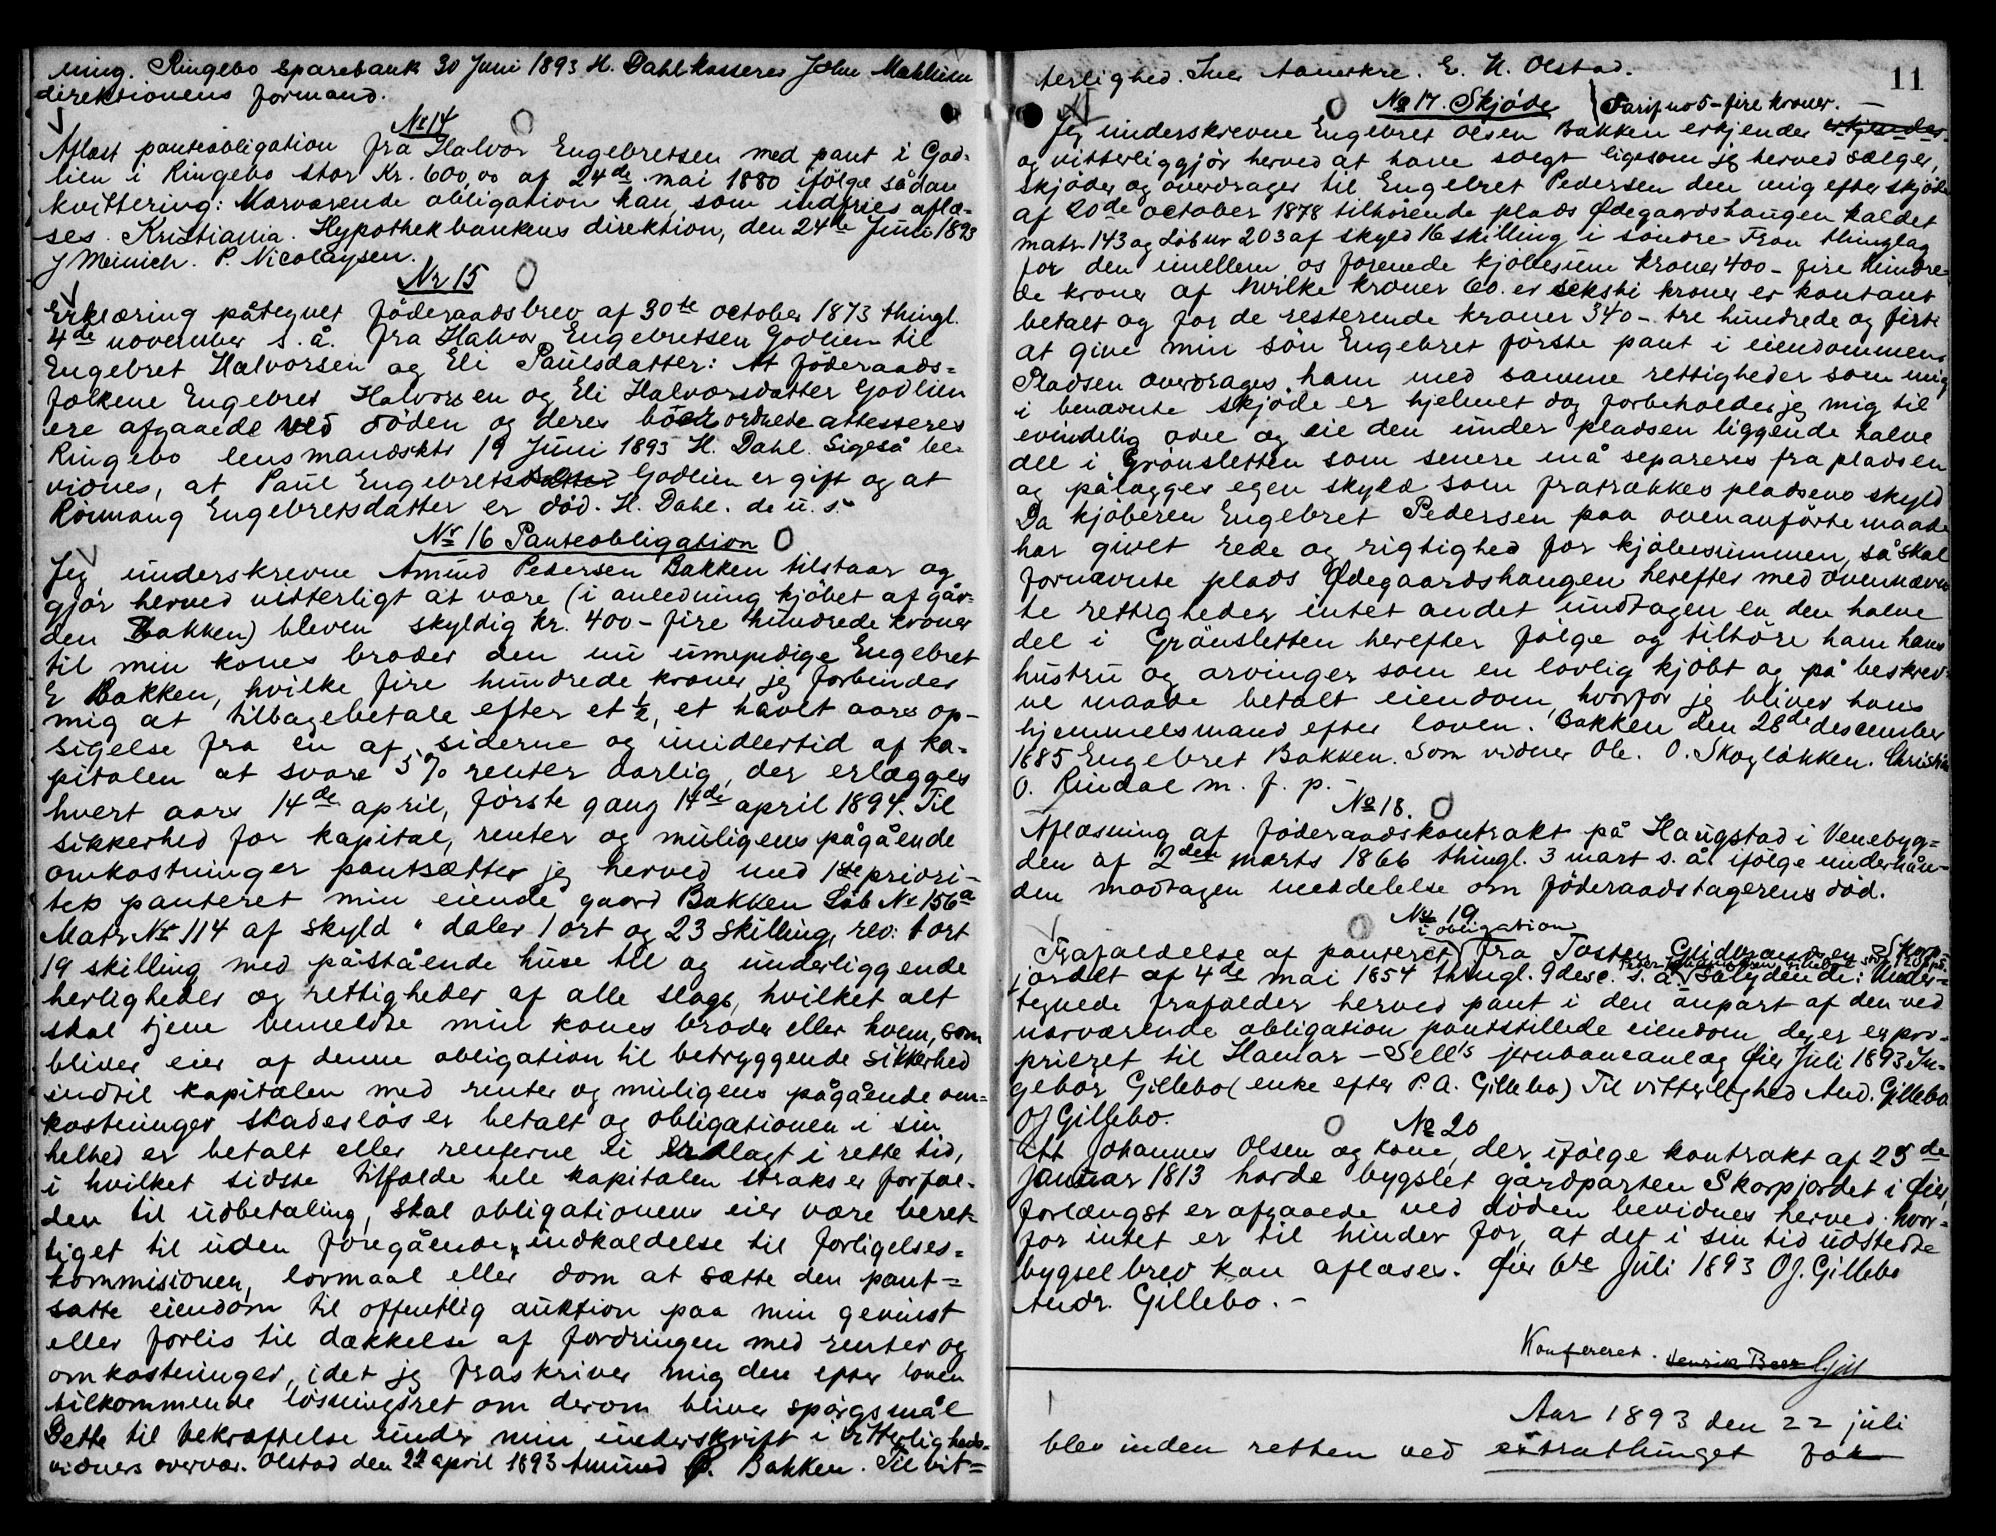 ning. Ringebo Sparebank 30 Juni 1893 H. Dahl kasserer John Mæhlum
direktionens formand.
Nr 14
Aflæst panteobligation fra Halvor Engebretsen med pant i God-
lien i Ringebo stor Kr. 600,00 af 24de mai 1880 ifølge sådan
kvittering: Nærværende obligation kan som indfries aflæ-
ses. Kristiania Hypothekbankens direktion, den 24de Juni 1893
J Meinich. P. Nicolaysen.
Nr 15
Erklæring påtegnet föderaadsbrev af 30te october 1873 thingl.
4de november s. å. fra Halvor Engebretsen Godlien til
Engebret Halvorsen og Eli Paulsdatter: At föderaads-
folkene Engebret Halvorsen og Eli Halvorsdatter Godlien
ere afgaaede ved döden og deres boer ordnede attesteres
Ringebo lensmandskts 19 Juni 1893 H. Dahl. Ligeså be-
vidnes, at Paul Engebretsdatter Godlien er gift og at
Rönnaug Engebretsdatter er död. H. Dahl. d. u. s.
Nr 16 Panteobligation
Jeg underskrevne Amund Pedersen Bakken tilstaar og
gjör herved vitterligt at være (i anledning kjöbet af går-
den Bakken) bleven skyldig kr. 400 - fire hundrede kroner
til min kones broder den nu umyndige Engebret
E Bakken, hvilke fire hundrede kroner jeg forbinder
mig at tilbagebetale efter et ½, et havlt aars op-
sigelse fra en af siderne og imidlertid af ka-
pitalen at svare 5 % renter aarlig, der erlægges
hvert aars 14de april, förste gang 14de april 1894. Til
sikkerhed for kapital, renter og muligens pågående
omkostninger pantsætter jeg herved med 1ste priori-
tets panteret min eiende gaard Bakken Löb No 156a
Matr No 114 af skyld " daler 1 ort og 23 skilling, rev: 1 ort
19 skilling med påstående huse til og underliggende
herligheder og rettigheder af alle slags, hvilket alt
skal tjene bemeldte min kones broder eller hvem, som
bliver eier af denne obligation til betryggende sikkerhed
indtil kapitalen med renter og muligens pågående om-
kostninger skadeslös er betalt og obligationen i sin
helhed er betalt eller renterne ei erlagt i rette tid,
i hvilket sidste tilfælde hele kapitalen straks er forfal-
den til udbetaling, skal obligationens eier være beret-
tiget til uden foregående indkaldelse til forligelses-
kommisionen, lovmaal eller dom at sætte den pant-
satte eiendom til offentlig auktion paa min gevinst
eller forlis til dækkelse af fordringen med renter og
omkostninger, idet jeg fraskriver mig den efter loven
tilkommende lösningsret om derom bliver spörgsmål
Dette til bekræftelse under min underskrift i vitterligheds-
vidners overvær. Olstad den 22 april 1893 Amund P. Bakken. Til vit-
terlighed. Iver E. N. Olstad.
11
No 17. Skjöde
Tarif no 5 - fire kroner. -
Jeg underskrevne Engebret Olsen Bakken erkjender erkjender
og vitterliggjör herved at have solgt ligesom jeg herved sælger,
skjöder og overdrager til Engebret Pedersen den mig efter skjöde
af 20de october 1878 tilhörende plads Ödegaardshaugen kaldet
matr 143 og Löbnr 203 af skyld 16 skilling i söndre Fron thinglag
for den imellem os forenede kjöbesum kroner 400 - fire hundre-
de kroner af hvilke kroner 60. er seksti kroner er kontant
betalt og for de resterende kroner 340 - tre hundrede og firti
at give min sön Engebret förste pant i eiendommen.
Pladsen overdrages ham med samme rettigheder som mig
i benævnte skjöde er hjemlet dog forbeholder jeg mig til
evindelig odel og eie den under pladsen liggende halve
del i Grönsletten som senere må separeres fra pladsen
og pålægges egen skyld som fratrækkes pladsens skyld
Da kjöberen Engebret Pedersen paa ovenanförte maade
har givet rede og rigtighed for kjöbesummen, så skal
fornævnte plads Ödegaardshaugen herefter med ovennævn-
te rettigheder intet andet undtagen en den halve
del i Grönsletten herefter fölge og tilhöre ham hans
hustru og arvinger som en lovlig kjöbt og på beskrev-
ne maade betalt eiendom hvorfor jeg bliver hans
hjemmelsmand efter loven. Bakken den 28de descember
1885 Engebret Bakken. Som vidner Ole. O. Skoglökken. Christian
O. Rindal m. f. p. -
No 18.
Aflæsning af föderaadskontrakt på Haugstad i Venebyg-
den af 2den marts 1866 thingl. 3 mart s. å. ifölge underhån-
den modtagen meddelelse om föderaadstagerens död.
No 19
i obligation
Frafaldelse af panteret fra Tosten Gudbrandsen Skorp-
jordet af 4de mai 1854 thingl. 9 desc. s. å. Salydende: Under-
tegnede frafalder herved pant i den anpart af den ved
nærværende obligation pantstillede eiendom der er expro-
prieret til Hamar - Sell's jernbaneanlæg Öier Juli 1893 In-
gebor Gillebo (enke efter P. A. Gillebo) Til vitterlighed And. Gillebo
O J Gillebo.
No 20
Att Johannes Olsen og kone, der ifölge kontrakt af 25de
Januar 1813 havde bygslet gårdparten Skorpjordet i Öier,
forlængst er afgaaede ved döden bevidnes herved. hvor-
for intet er til hinder for, at det i sin tid udstedte
bygselbrev kan aflæses. Öier 6te Juli 1893 O J. Gillebo
Andr. Gillebo. -
Konfereret. Henrik Beer
Aar 1893 den 22 juli
blev inden retten ved extrathinget for